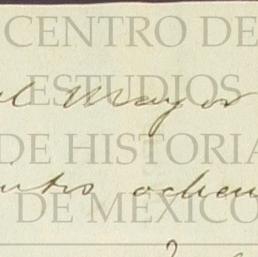 CENTRO DE
ESTUDIOS
al Mayor
DE HISTORIA
ochen
DE MEXICO